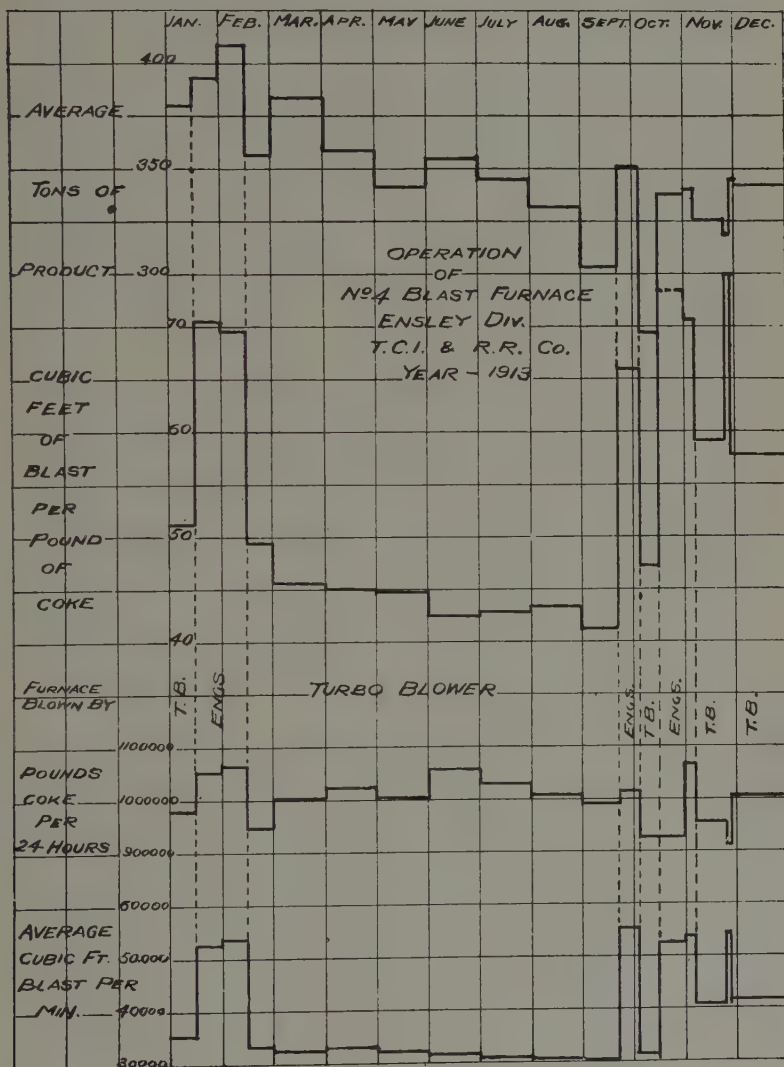 JAN. FEB. MAR. APR. MAY JUNE JULY AUG. SEPT. OCT. NOV. DEC.
400
AVERAGE
350
TONS OF
PRODUCT
300
OPERATION
OF
No 4 BLAST FURNACE
ENSLEY DIV.
T.C.I. & R.R. Co.
YEAR - 1913
70
CUBIC
FEET
OF
BLAST
PER
POUND
OF
COKE
60
50
40
FURNACE
BLOWN BY
T.B.
ENGS.
TURBO BLOWER
ENGS.
T.B.
ENGS.
T.B.
T.B.
1100000
POUNDS
COKE
PER
24 HOURS
1000000
900000
60000
AVERAGE
CUBIC FT.
BLAST PER
MIN.
50000
40000
30000